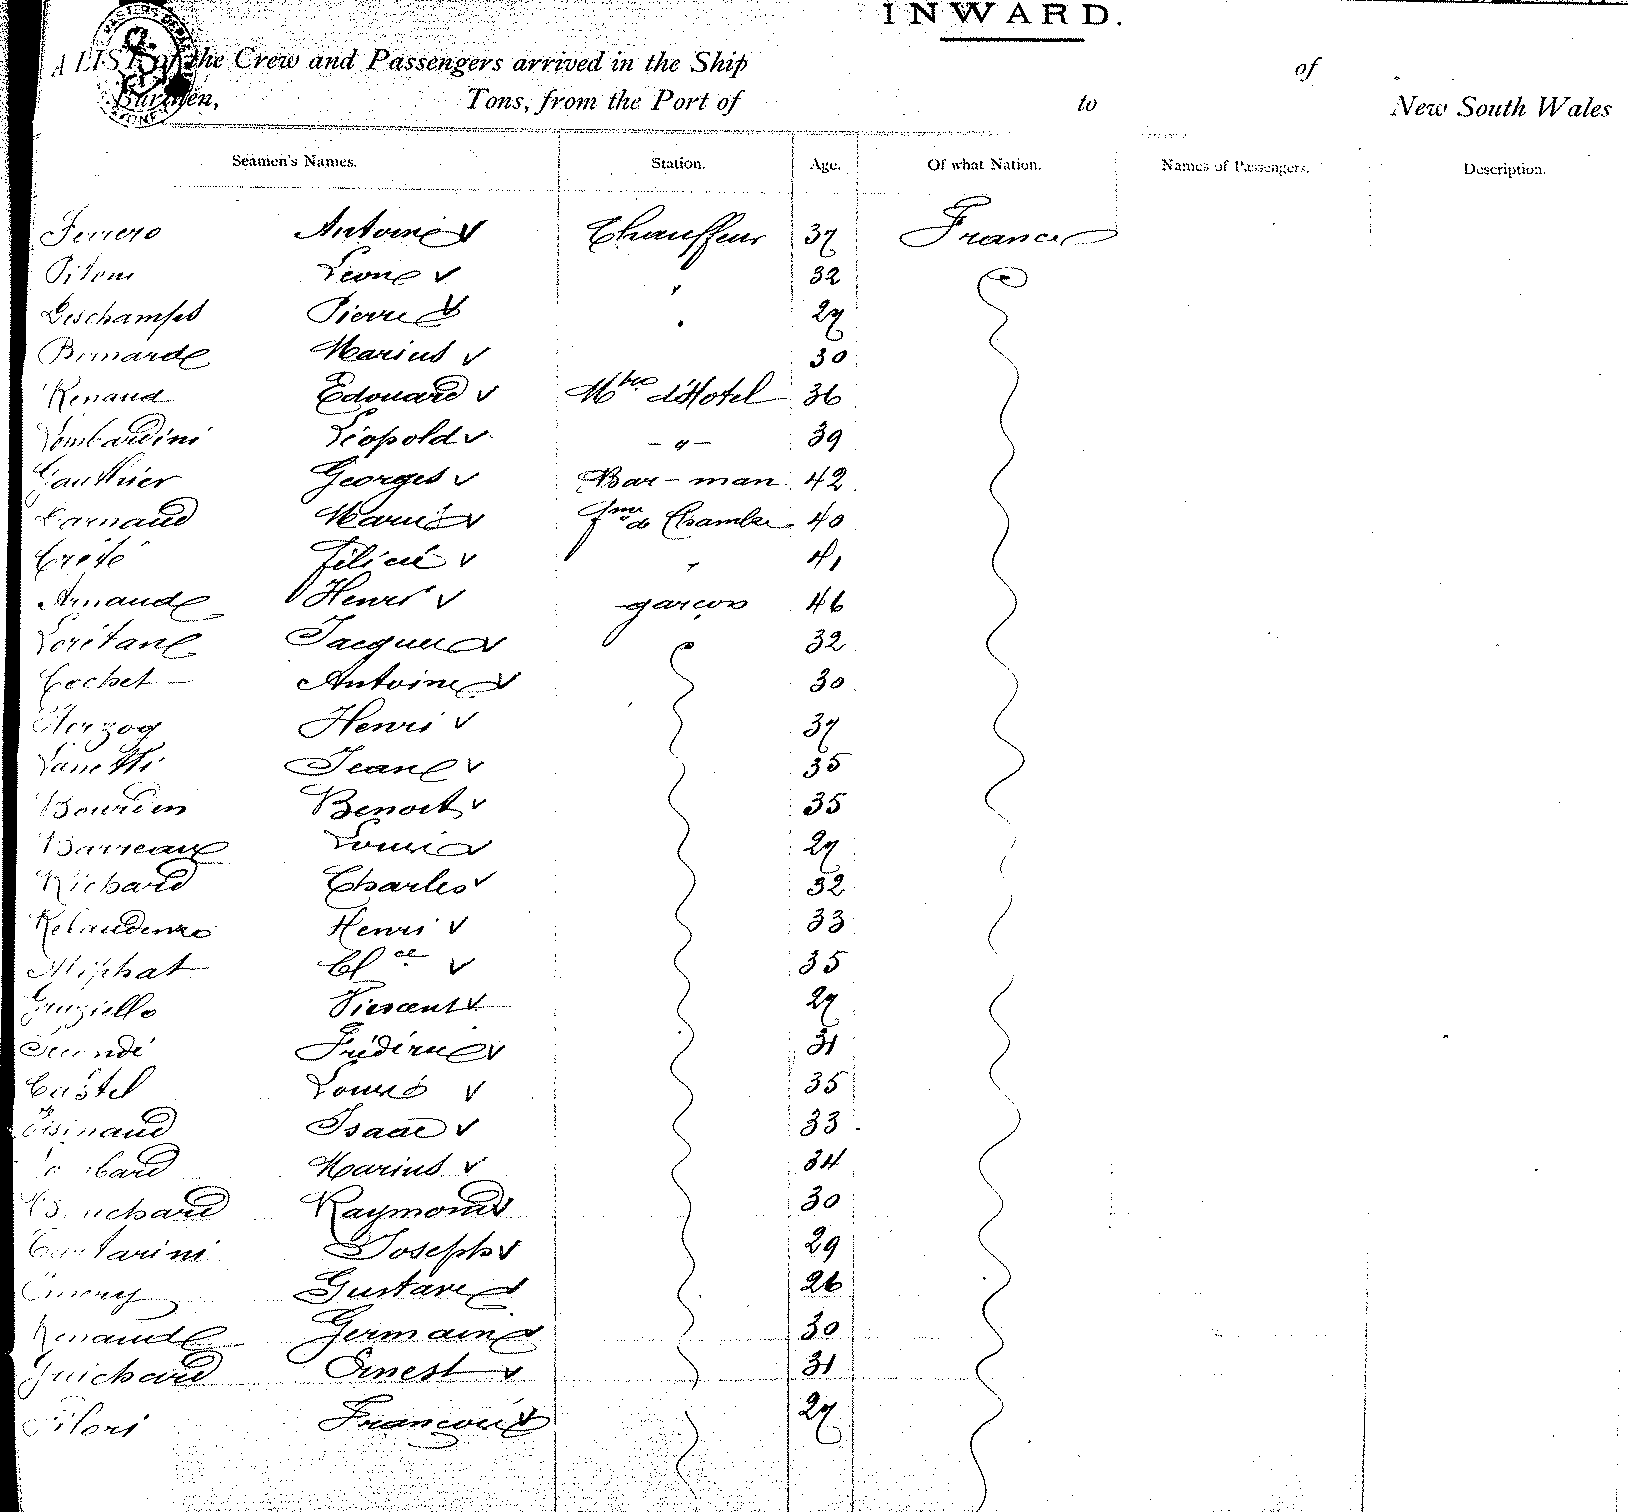 INWARD.
A LIST of the Crew and Passengers arrived in the Ship of
Burthen, Tons, from the Port of to New South Wales
Seamen's Names. Station. Age. Of what Nation. Names of Passengers. Description.
Ferrero Antoine v Chauffeur 37 France
Leon v " 32
Deschamps Pierre v " 27
Bernard Marius v 30
Renaud Edouard v Mtre d'Hotel 36
Lombardini Léopold v - " - 39
Gauthier Georges v Bar-man 42
Barnaud Marie v fme de Chambre 40
Crété Félicie v " 41
Arnaud Henri v garçon 46
Lorétan Jacques v 32
Cochet - Antoine v 30
Herzog Henri v 37
Vanetti Jean v 35
Bourdin Benoit v 35
Barreau Louis v 27
Richard Charles v 32
Henri v 33
Miphat v 35
Graziello Vincent v 27
Secondi Frédéric v 31
Castel Louis v 35
Isaac v 33
Marius v 34
Bouchard Raymond v 30
Joseph v 29
Emery Gustave v 26
Renaud Germain v 30
Guichard Ernest v 31
Pilori François v 27